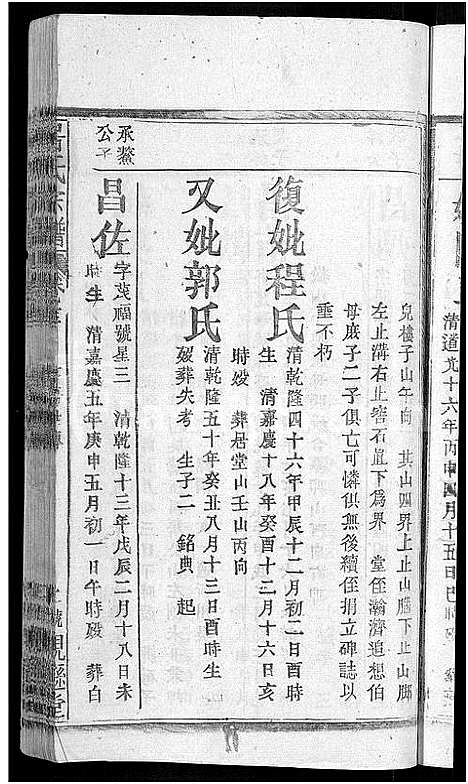 清道光十六年丙申四月十五日巳時
兒樓子山午向　其山四界上止山腦下止山腳
左止溝右止窖石㽵下爲界　堂侄瀚濟追想伯
母庶子二子俱亡可憐俱無後續侄捐立碑誌以
垂不朽
復妣程氏
清乾隆四十六年甲辰十二月初二日酉時
生　清嘉慶十八年癸酉十二月十六日亥
時歿　葬居堂山壬山丙向
又妣郭氏
清乾隆五十年癸丑八月十三日酉時生
歿葬失考　生子二　銘典　起
承鰲
公子
昌佐
字茂福號星三　清乾隆十三年戊辰二月十八日未
時生　清嘉慶五年庚申五月初一日午時歿　葬白
呂氏宗譜